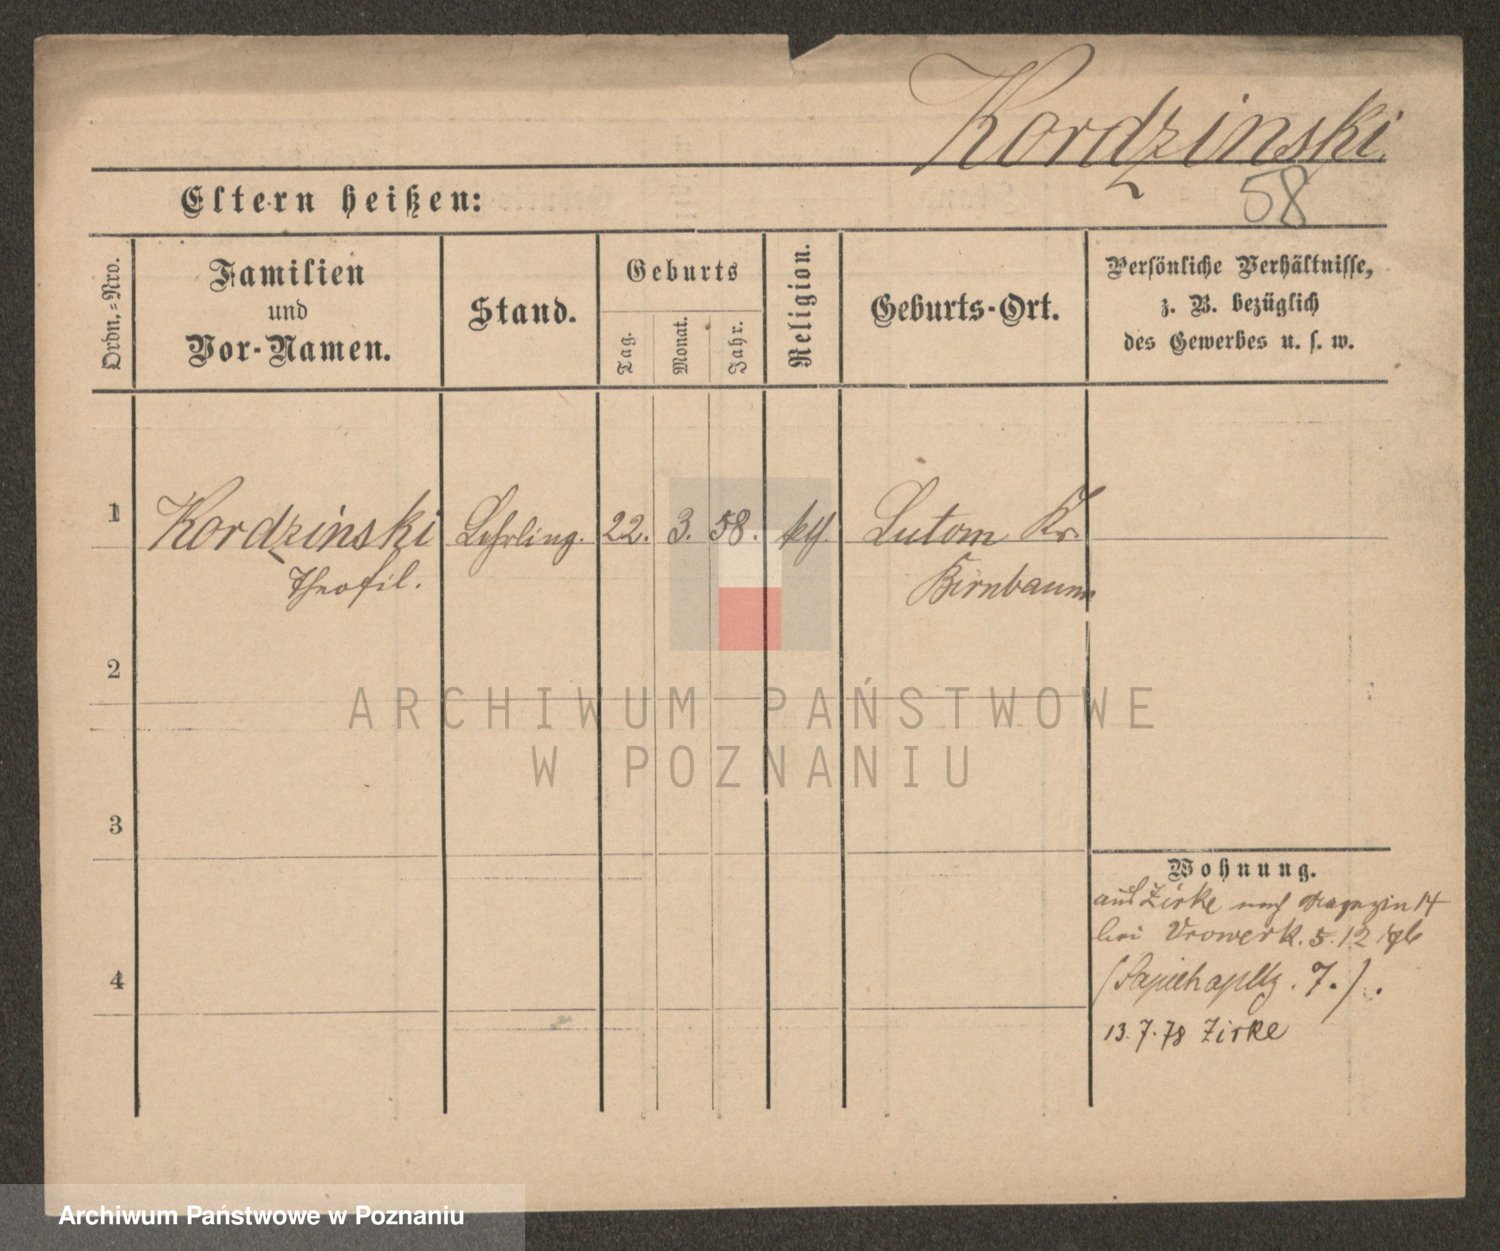 Kordzinski
58
Eltern heißen:
Ordn.-Nro.
Familien
und
Vor-Namen.
Stand.
Geburts
Tag.
Monat.
Jahr.
Religion.
Geburts-Ort.
Persönliche Verhältnisse,
z. B. bezüglich
des Gewerbes u. s. w.
1 Kordzinski Lehrling. 22. 3. 58. kth. Lutom Kr.
Theofil. Birnbaum
2
ARCHIWUM PAŃSTWOWE
W POZNANIU
3
Wohnung.
aus Zirke nach Magazin 14
bei Urowerk. 5.12 76
4
(Sapiehapltz. 7.).
13.7.78 Zirke
Archiwum Państwowe w Poznaniu